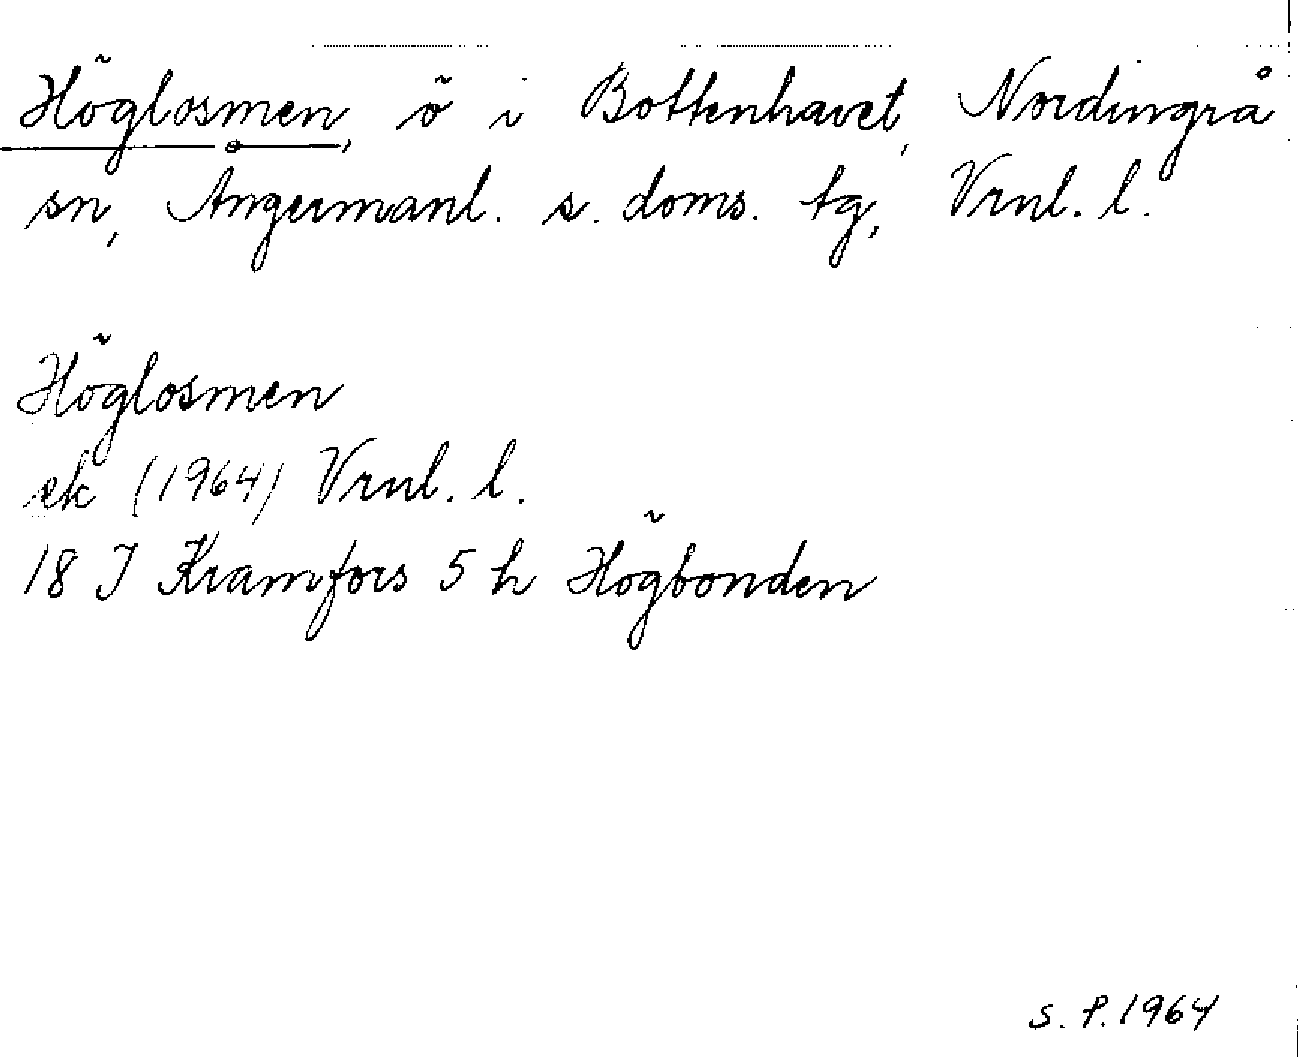 Höglosmen, ö i Bottenhavet, Nordingrå
sn, Ångermanl. s. doms. tg, Vrnl. l.
Höglosmen
ek (1964) Vrnl. l.
18 J Kramfors 5 h Högbonden
S. P. 1964